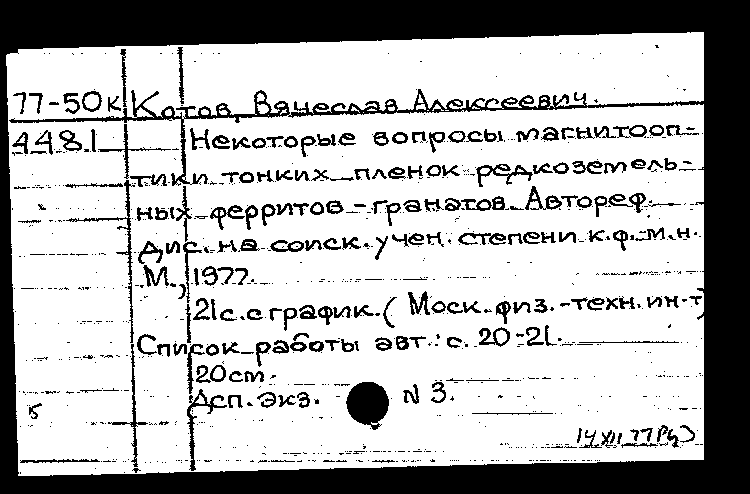 77-50к Котов, Вячеслав Алексеевич.
4481 Некоторые вопросы магнитооп-
тики тонких пленок редкоземель-
ных ферритов-гранатов. Автореф.
дис. на соиск. учен. степени к.ф.-м.н.
М., 1977.
21с. с график. (Моск. физ.-техн. ин-т)
Список работы авт.: с. 20-21.
20см.
Дсп. Экз. N 3.
15
14 XII 77